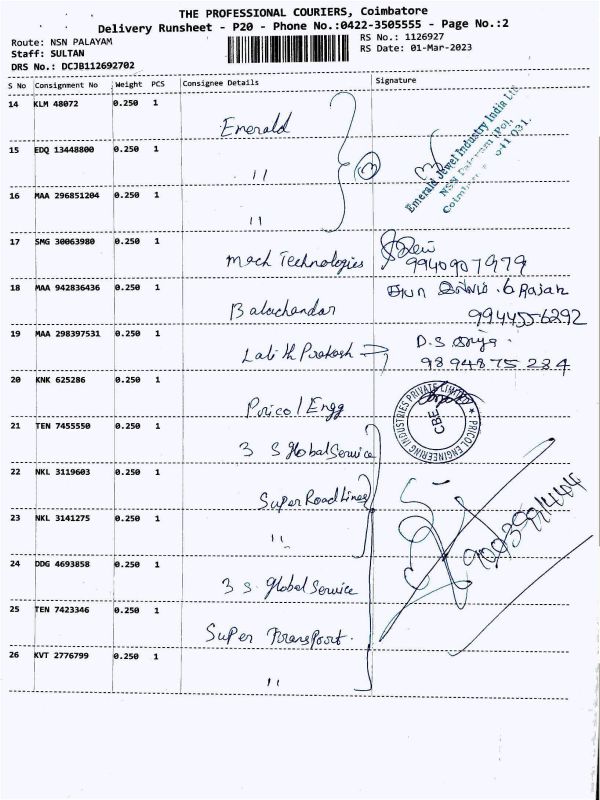 THE PROFESSIONAL COURIERS, Coimbatore
Delivery Runsheet - P20 - Phone No.:0422-3505555 - Page No.:2
Route: NSN PALAYAM
Staff: SULTAN
DRS No.: DCJB112692702
RS No.: 1126927
RS Date: 01-Mar-2023
S No Consignment No Weight PCS Consignee Details Signature
14 KLM 48072 0.250 1
Emerald
Emerald Jewel Industry India Ltd
15 EDQ 13448800 0.250 1
"
16 MAA 296851204 0.250 1
"
17 SMG 30063980 0.250 1
Mach Technologies
9940907979
18 MAA 942836436 0.250 1
Balachandar
b Rajah
9944556292
19 MAA 298397531 0.250 1
Lalith Prakash
D.S
9894875234
20 KNK 625286 0.250 1
Pricol Engg
PRICOL ENGINEERING INDUSTRIES PRIVATE LIMITED
CBE
21 TEN 7455550 0.250 1
3 S Global Service
22 NKL 3119603 0.250 1
Super Road Lines
23 NKL 3141275 0.250 1
"
24 DDG 4693858 0.250 1
3 S. Global Service
25 TEN 7423346 0.250 1
Super Transport.
26 KVT 2776799 0.250 1
"